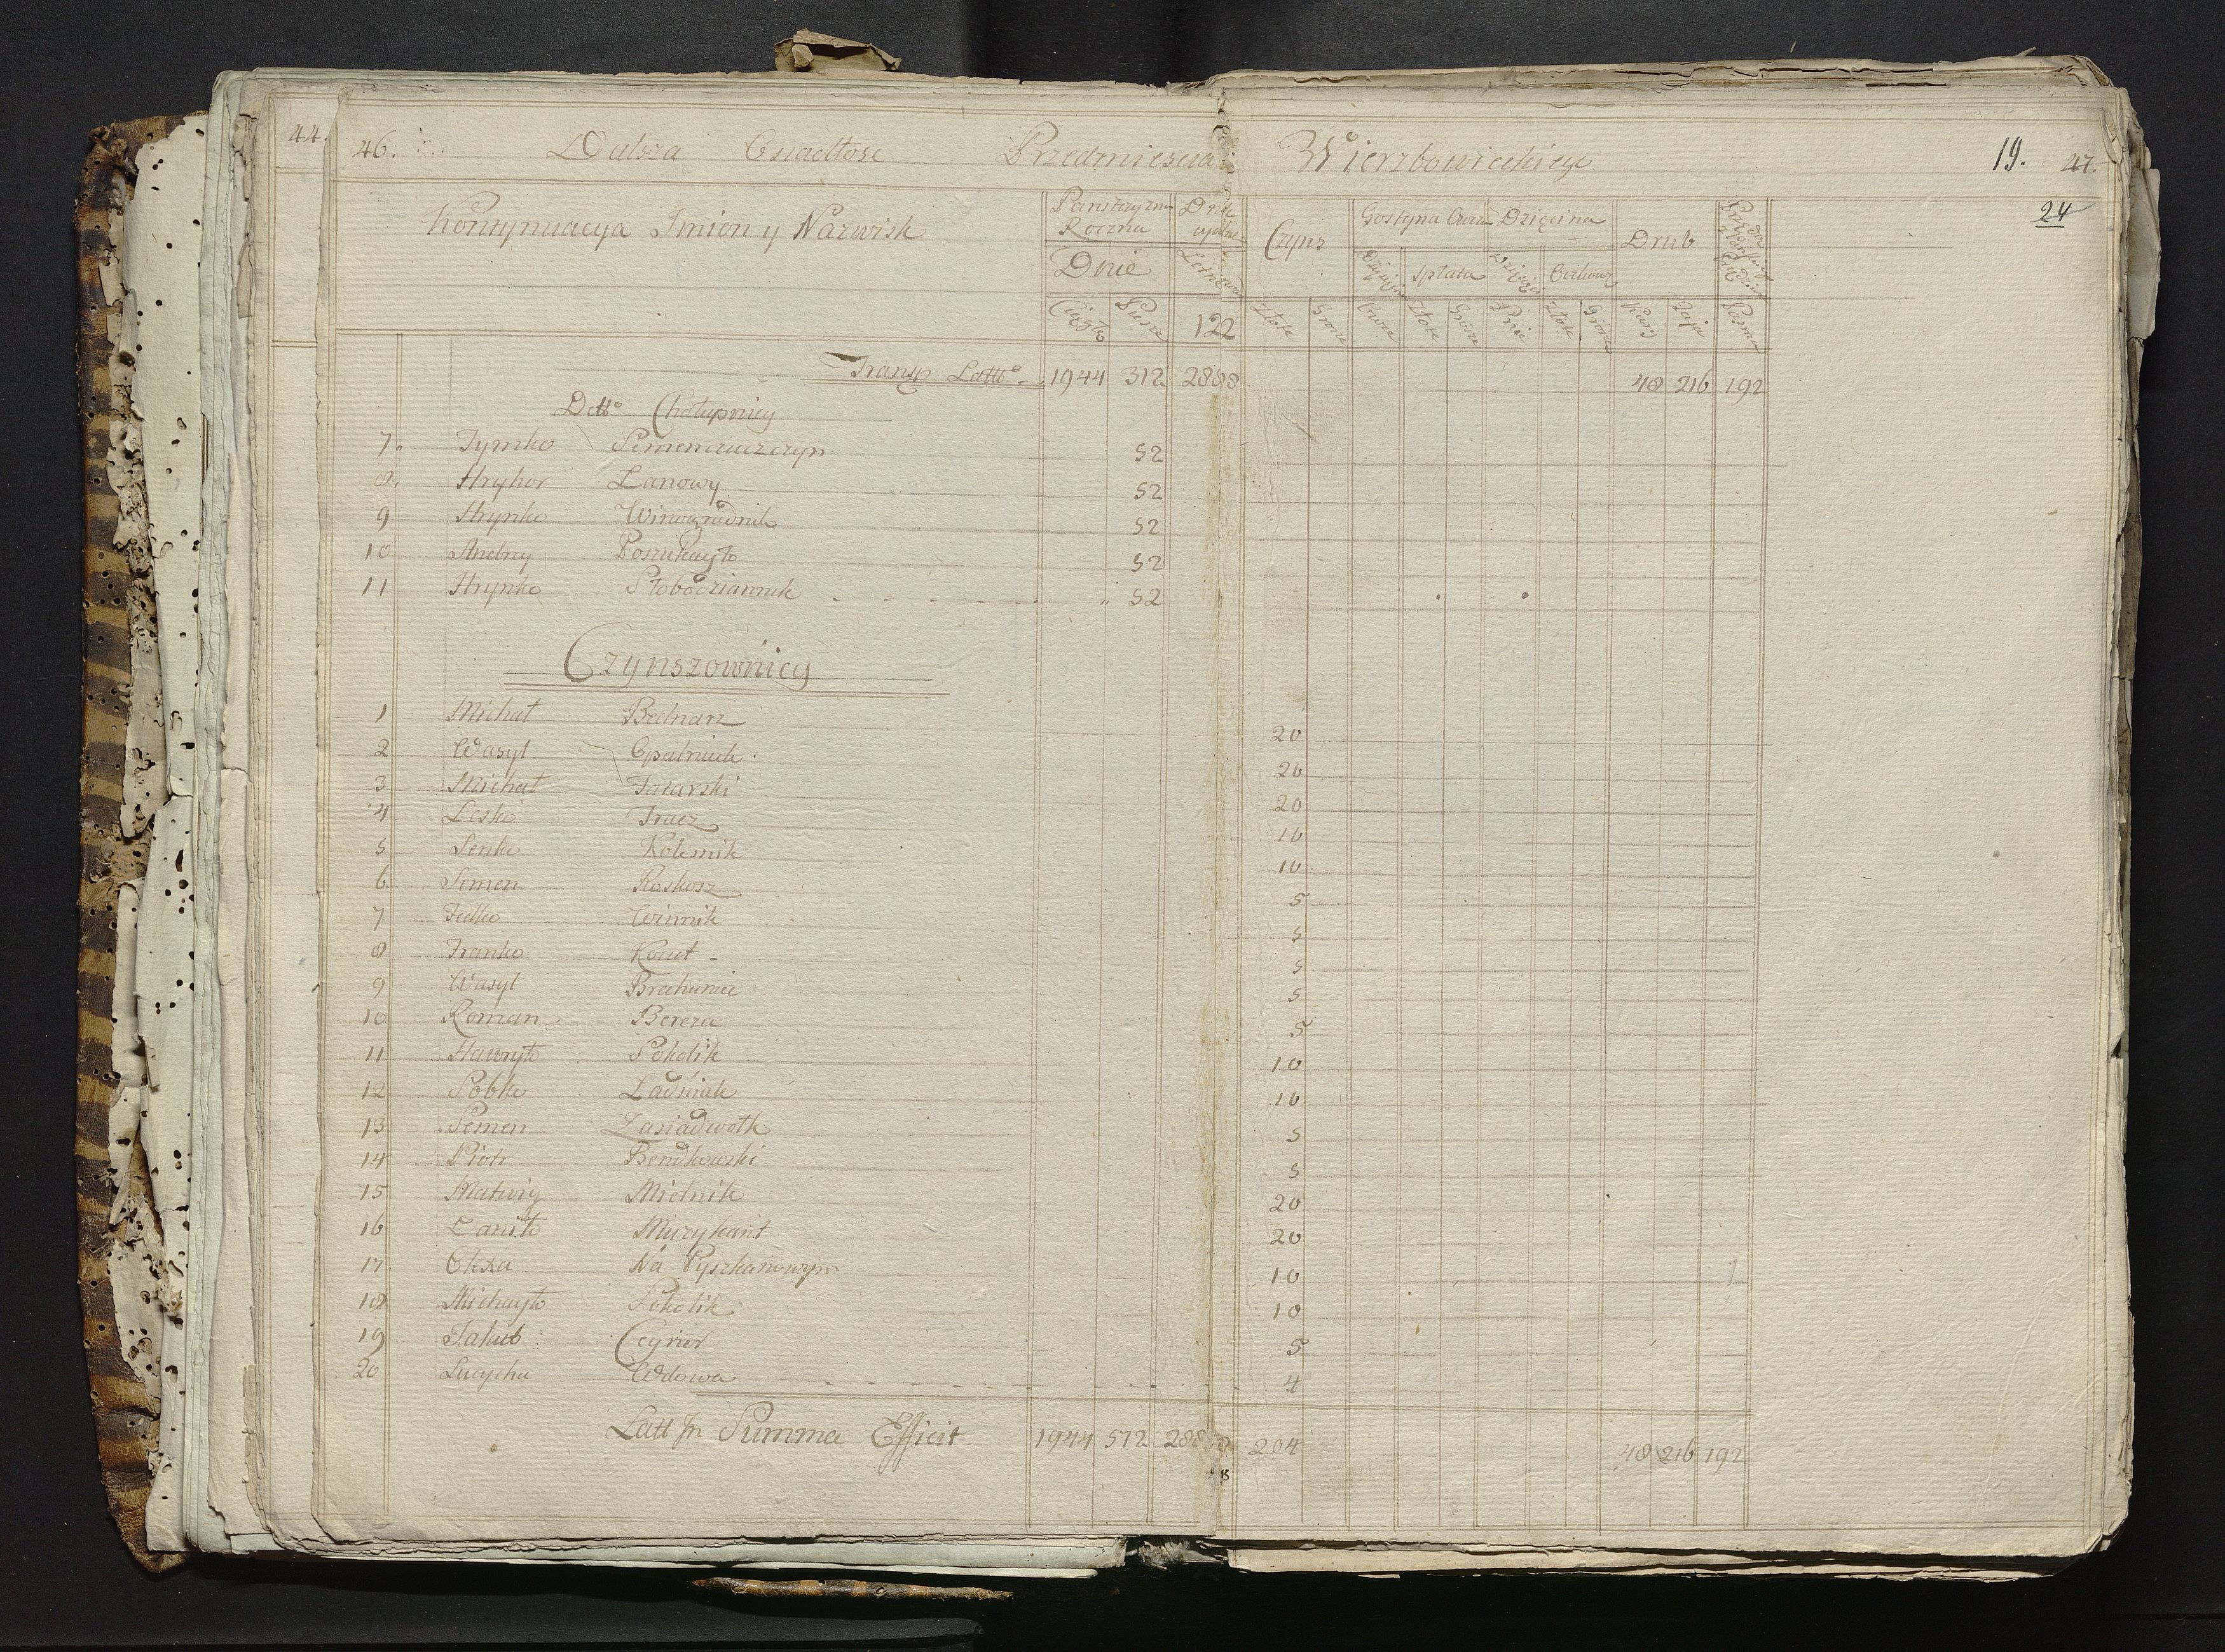 44.
46. Dalsza Osiadłosc Przedmiescia Wierzbowieckiego 19. 47.
24
Kontynuacya Imion y Nazwisk Panszczyzna Roczna Czynsz Gostyna Owcza Dziesięcina Drub
Dnie Spłata
Ciągłe Piesze 122 Złote Grosze Owce Złote Grosze Pnie Złote Grosze Kury Jaja Pasma
Transp Latto 1944 312 2888 48 216 192
Detto Chałupnicy
7. Tymko Semenczuczczyn 52
8. Hryhor Lanowy 52
9 Hrynko Winogradnik 52
10 Andrzy Poszukayło 52
11 Hrynko Słobodzianiuk 52
Czynszownicy
1 Michał Bednarz 20
2 Wasyl Opalniuk 20
3 Michał Tatarski 20
4 Lesko Tracz 10
5 Senko Kolesnik 10
6 Semen Roskosz 5
7 Fedko Winnik 5
8 Franko Kocut 5
9 Wasyl 5
10 Roman Bereza 5
11 Hawryło Sokolik 10
12 Sobko Ladniak 10
13 Semen Zasiadwołk 5
14 Piotr Bendkowski 5
15 Matwiy Mielnik 20
16 Daniło Muzykant 20
17 Olexa Na Pyszkanowym 10
18 Michayło Sokolik 10
19 Jakub Ceyner 5
20 Lucycha Wdowa 4
Latt Jn Summa Efficit 1944 572 2888 204 48 216 192